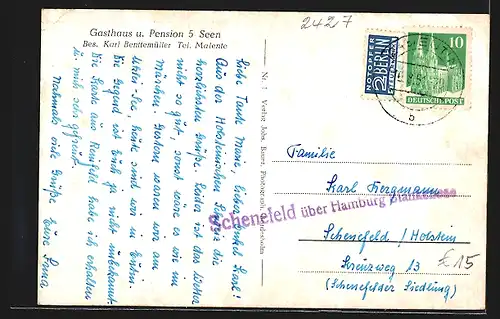 Gasthaus u. Pension 5 Seen
Bes. Karl Benttemüller Tel. Malente
2427
NOTOPFER
2 BERLIN
STEUERMARKE
10
DEUTSCHE POST
b
Liebe Tante Mimi, lieber Onkel Karl!
Aus der Holsteinischen Schweiz die
herzlichsten Grüße. Leider ist das Wetter
nicht so gut, sonst wäre es wie im
Märchen. Gestern waren wir am
Uklei-See, heute sind wir in Eutin.
Die Gegend ist Euch ja nicht unbekannt.
Die Karte aus Reinfeld habe ich erhalten
u. mich sehr gefreut.
Nochmals viele Grüße Eure
Familie
Karl Bergmann
Schenefeld über Hamburg Blankenese
Schenefeld / Holstein
Kreuzweg 13
(Schenefelder Siedlung)
€15